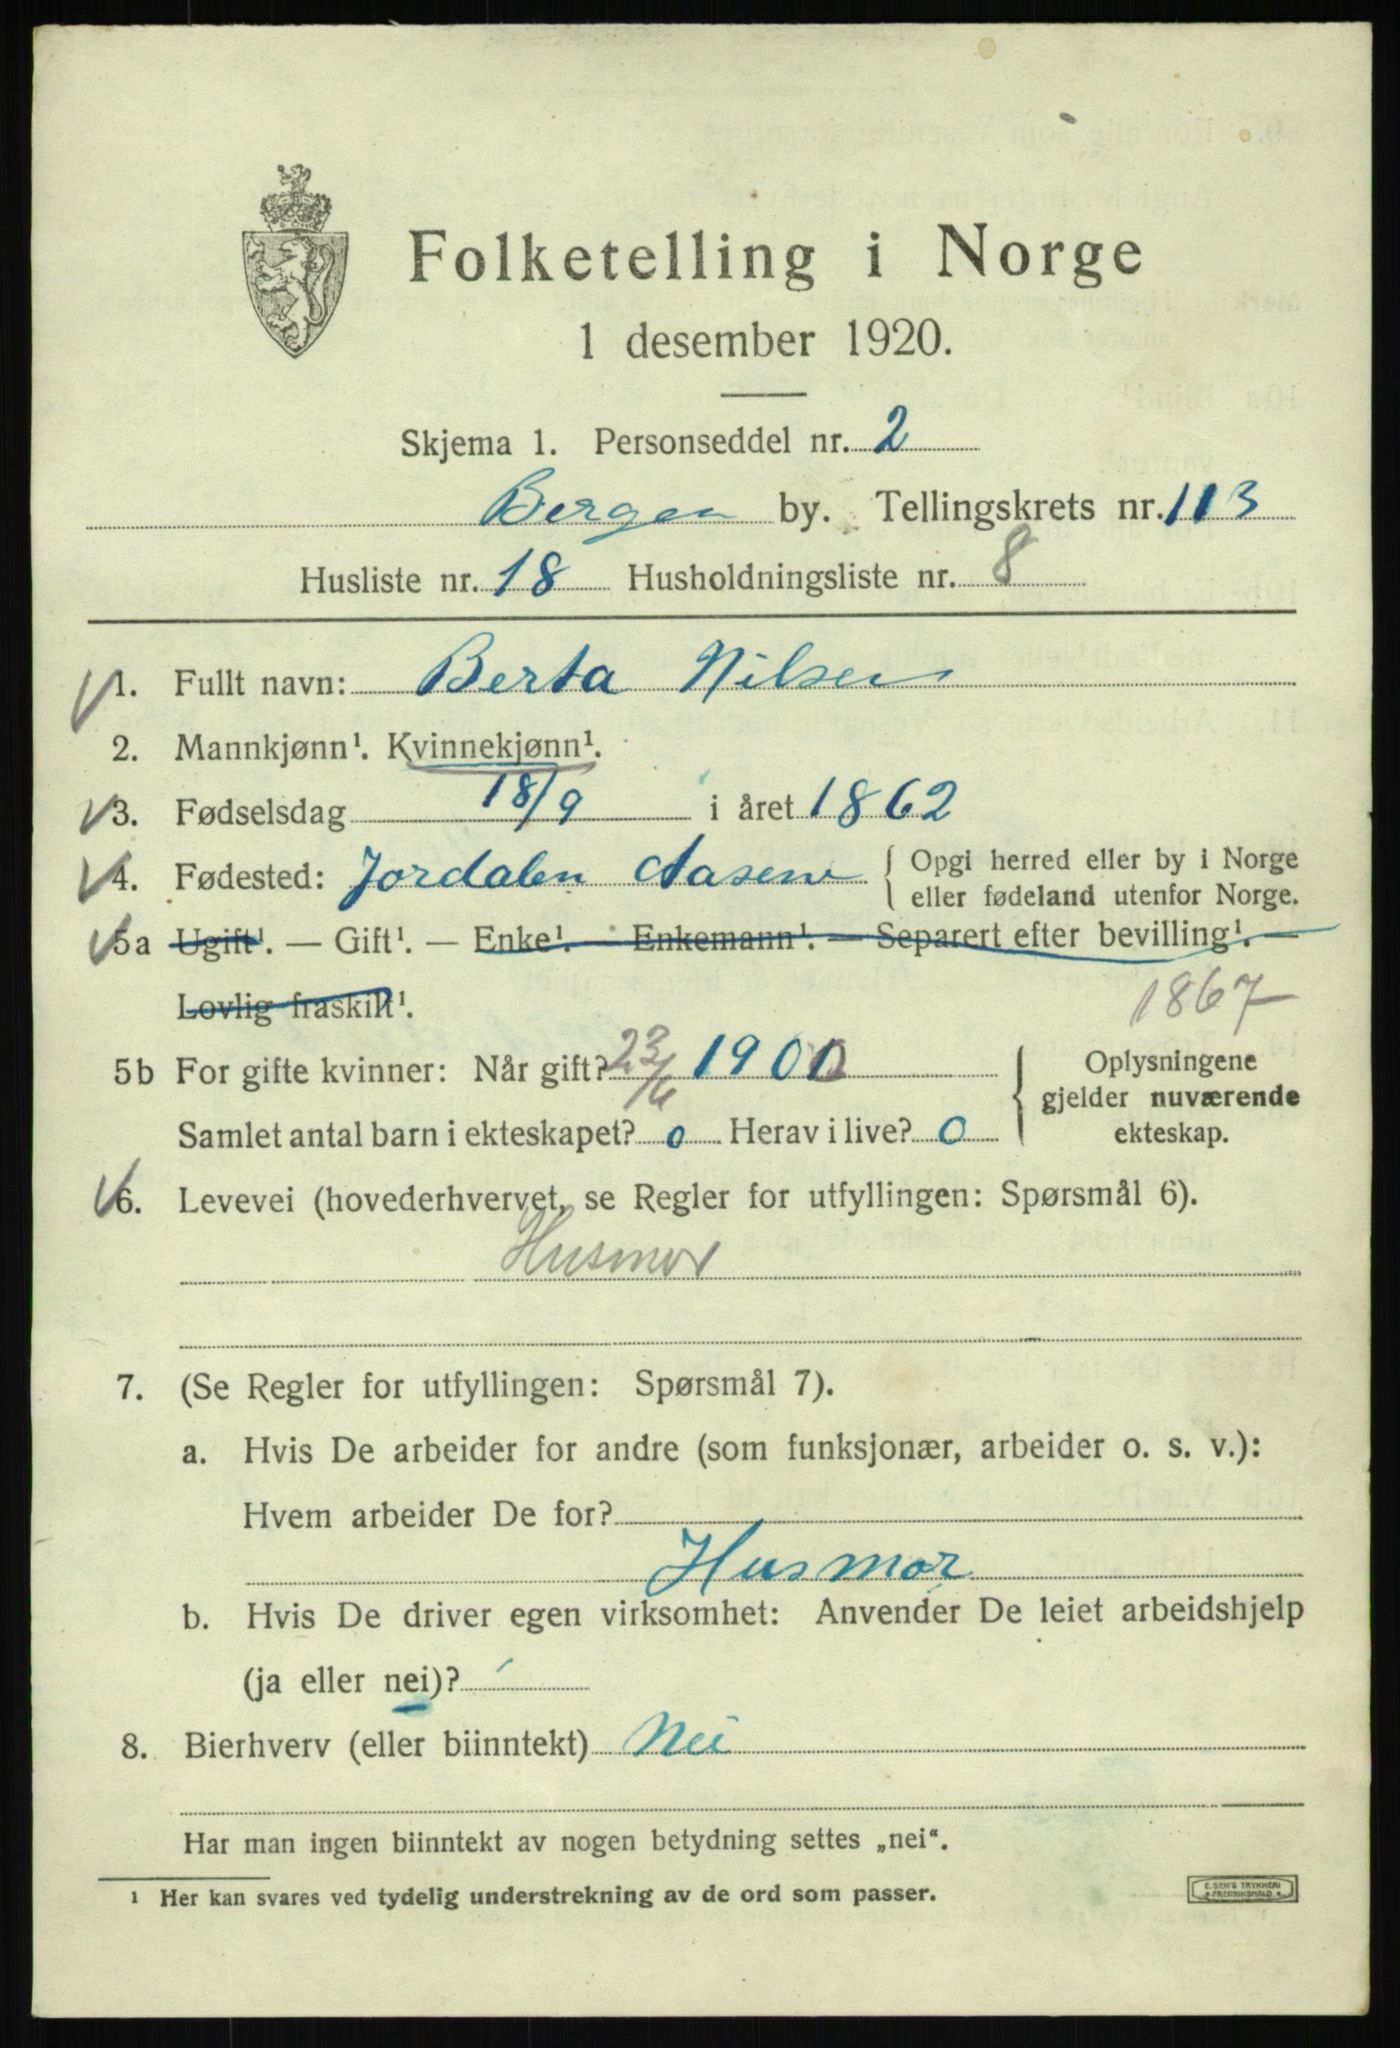 Folketelling i Norge
1 desember 1920.
Skjema 1. Personseddel nr. 2
Bergen by. Tellingskrets nr. 113
Husliste nr. 18 Husholdningsliste nr. 8
1. Fullt navn: Berta Nilsen
2. Mannkjønn¹. Kvinnekjønn¹.
3. Fødselsdag 18/9 i året 1862
4. Fødested: Jordalen Aasene { Opgi herred eller by i Norge
eller fødeland utenfor Norge.
5a Ugift¹. — Gift¹. — Enke¹. — Enkemann¹. — Separert efter bevilling¹. —
Lovlig fraskilt¹.
1867
5b For gifte kvinner: Når gift? 23/6 1900
Samlet antal barn i ekteskapet? 0 Herav i live? 0
{ Oplysningene
gjelder nuværende
ekteskap.
6. Levevei (hovederhvervet, se Regler for utfyllingen: Spørsmål 6).
Husmor
7. (Se Regler for utfyllingen: Spørsmål 7).
a. Hvis De arbeider for andre (som funksjonær, arbeider o. s. v.):
Hvem arbeider De for?
Husmor
b. Hvis De driver egen virksomhet: Anvender De leiet arbeidshjelp
(ja eller nei)?
8. Bierhverv (eller biinntekt) Nei
Har man ingen biinntekt av nogen betydning settes „nei“.
¹ Her kan svares ved tydelig understrekning av de ord som passer.
E. SEM'S TRYKKERI
FREDRIKSHALD